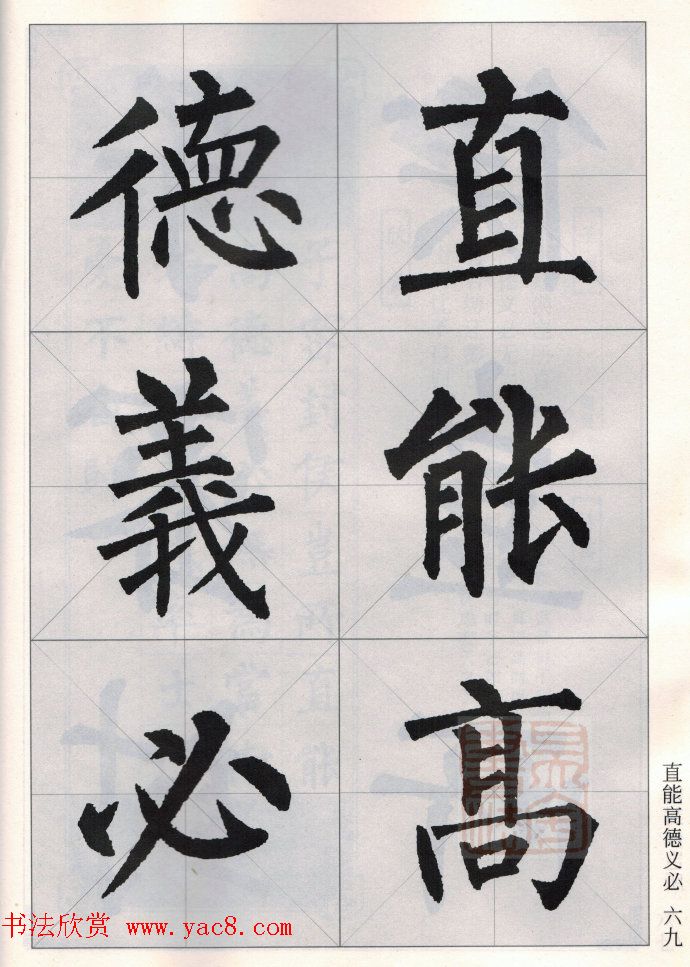 直能高
德義必
直能高德义必 六九
书法欣赏 www.yac8.com